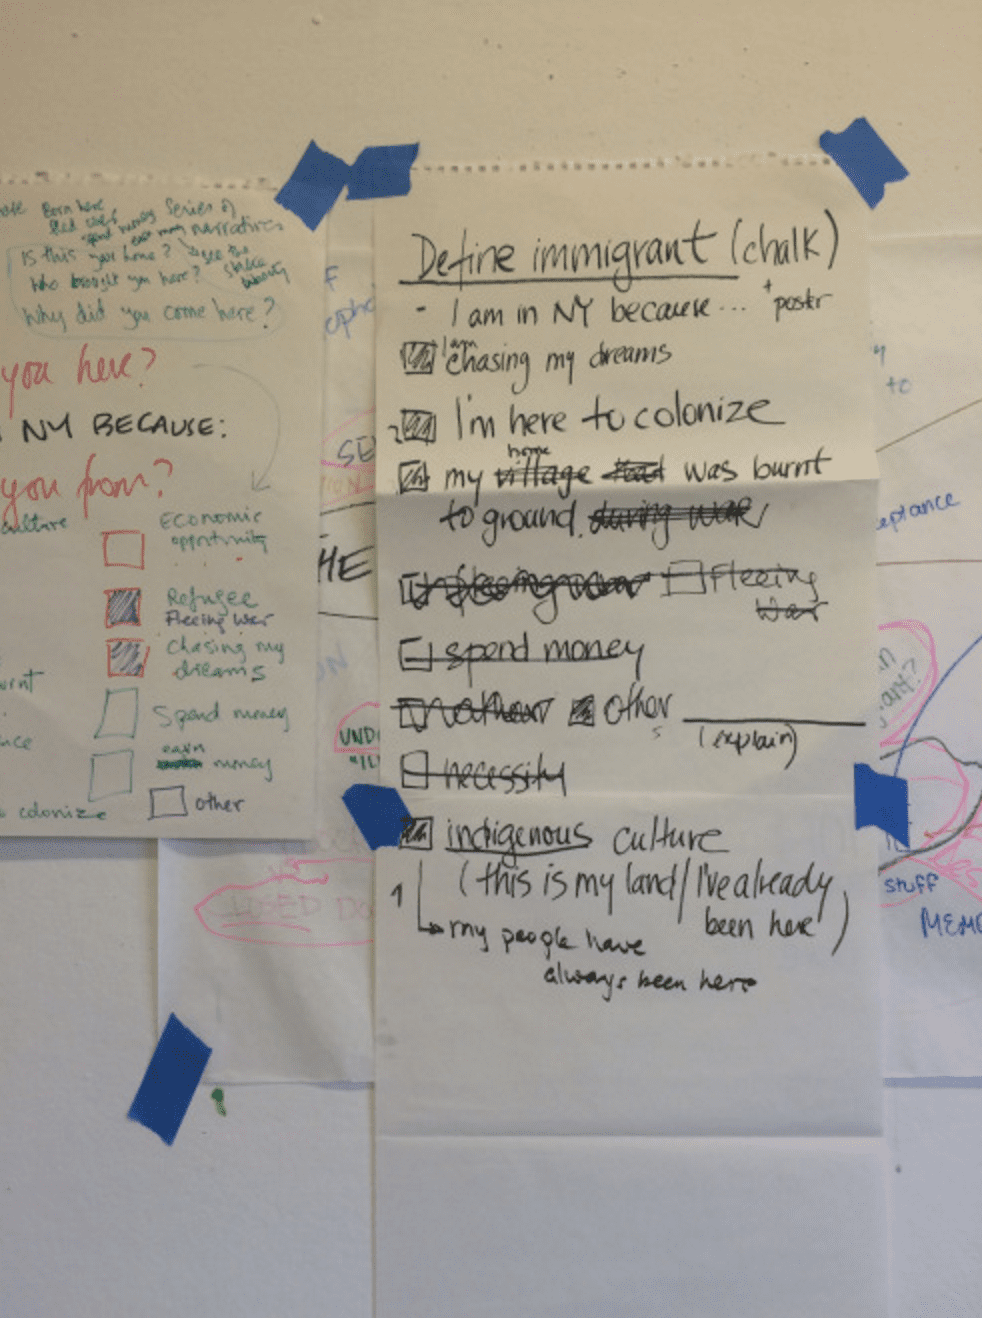 Born here
Series of
narratives
spend money
earn money
Is this your home? see the
who brought you here?
Why did you come here?
you here?
NY BECAUSE:
you from?
culture
Economic
opportunity
Refugee
Fleeing War
Chasing my
dreams
Spend money
earn
money
other
colonize
Define immigrant (chalk)
+ poster
- I am in NY because...
I am
chasing my dreams
2 I'm here to colonize
home
my village was burnt
to ground. during war
Fleeing
War
spend money
other
(explain)
necessity
indigenous culture
1 (this is my land/I've already
been here)
my people have
always been here
HE
UND
"IL
eptance
to
stuff
MEMO